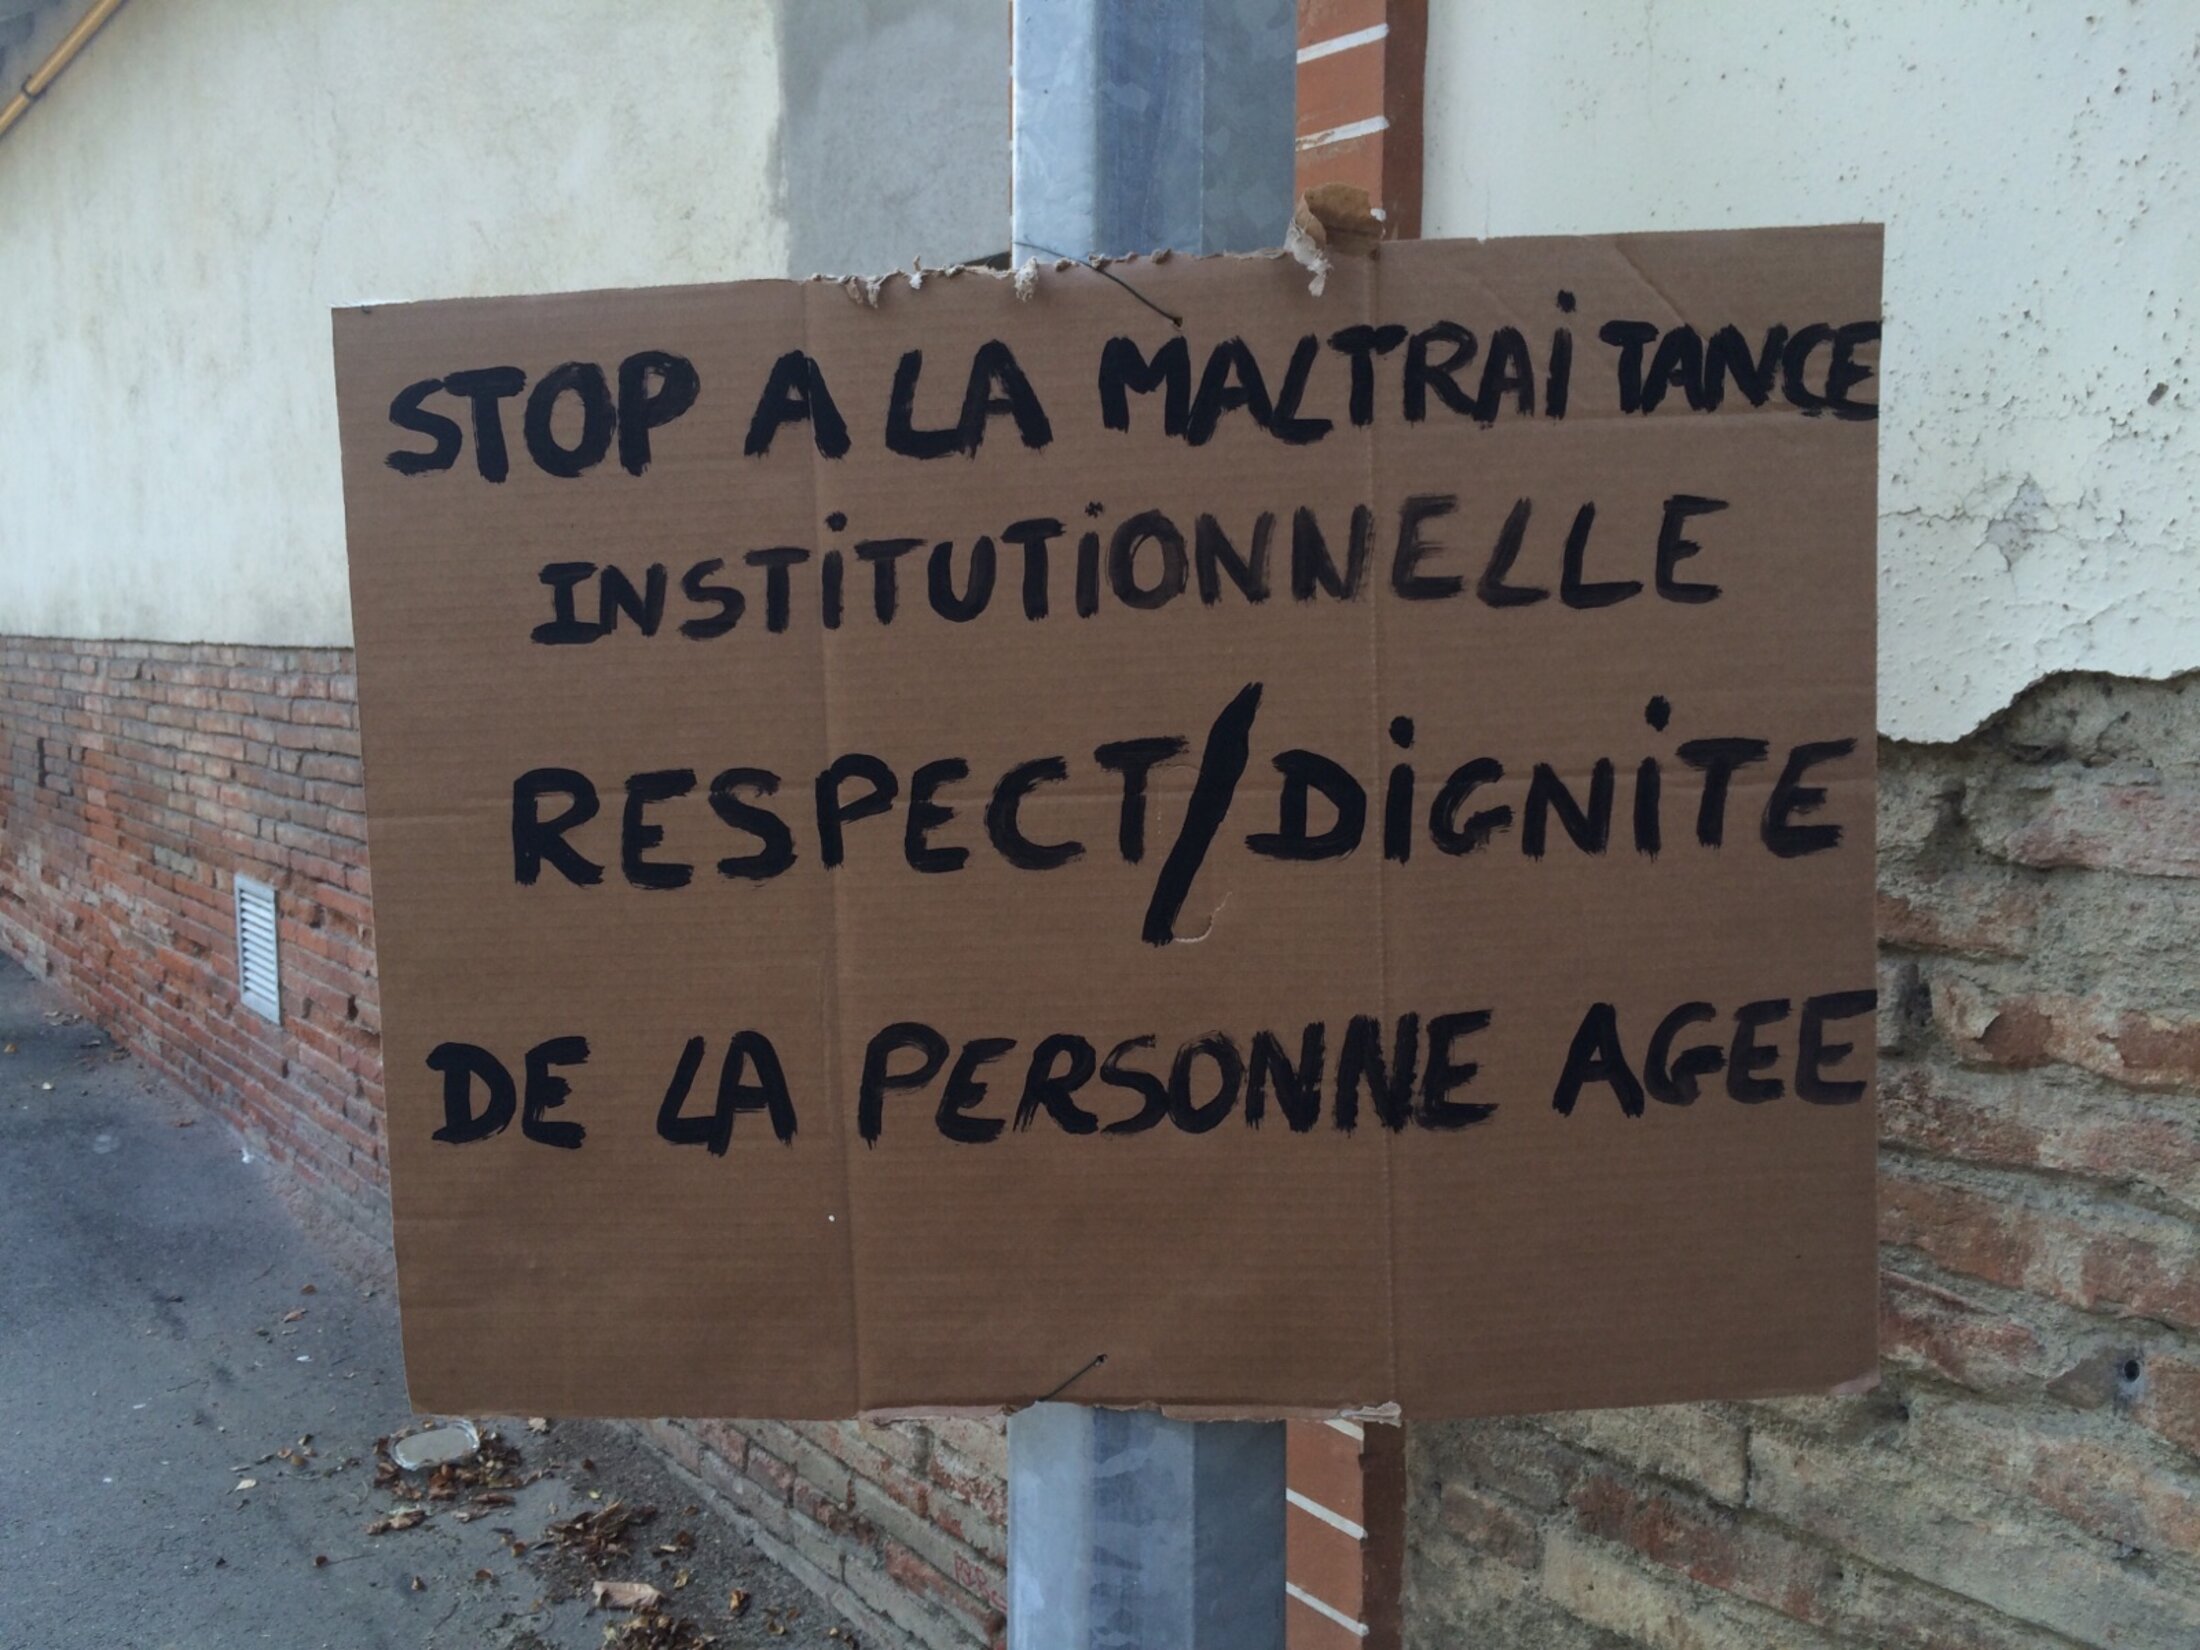 STOP A LA MALTRAiTANCE
INSTiTUTiONNELLE
RESPECT/DiGNiTE
DE LA PERSONNE AGEE